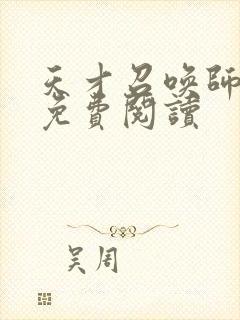 天才召喚師
免費閱讀
吴周